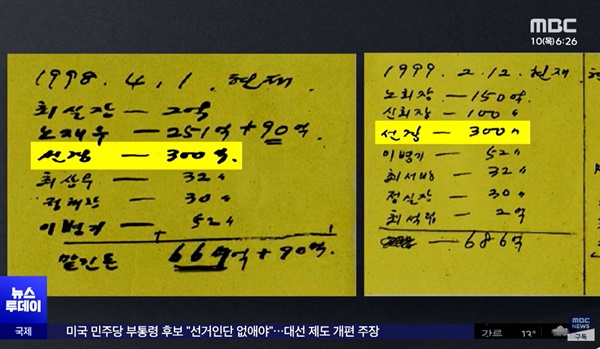 MBC
10(목)6:26
1998. 4. 1. 현재
최실장 - 2억
노재우 - 251억 + 90억
선경 - 300억
최상무 - 32〃
정해창 - 30〃
이병기 - 52〃
맡긴돈 667억 + 90억
1999. 2. 12. 현재
노회장 - 150억
신회장 - 100〃
선경 - 300〃
이병기 - 52〃
최서방 - 32〃
정실장 - 30〃
최석립 - 2억
- 686억
뉴스
투데이
국제 미국 민주당 부통령 후보 "선거인단 없애야"…대선 제도 개편 주장
강릉 13°
MBC NEWS
구독